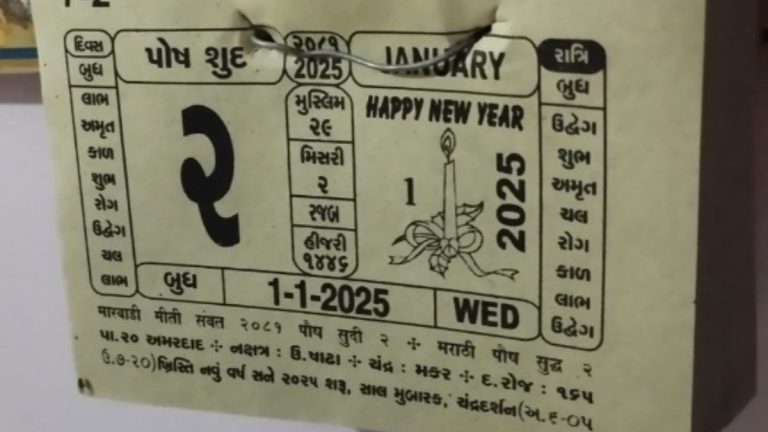 દિવસ
બુધ
લાભ
અમૃત
કાળ
શુભ
રોગ
ઉદ્વેગ
ચલ
લાભ
પોષ શુદ
૨
બુધ
૨૦૮૧
2025
મુસ્લિમ
૨૯
મિસરી
૨
રજબ
હીજરી
૧૪૪૬
JANUARY
HAPPY NEW YEAR
1
2025
1-1-2025
WED
રાત્રિ
બુધ
ઉદ્વેગ
શુભ
અમૃત
ચલ
રોગ
કાળ
લાભ
ઉદ્વેગ
મારવાડી મીતી સંવત ૨૦૮૧ પૌષ સુદી ૨ ÷ મરાઠી પૌષ સુદ્ધ ૨
પા.૨૦ અમરદાદ ÷ નક્ષત્ર : ઉ.ષાઢા ÷ ચંદ્ર : મકર ÷ દ.રોજ : ૧૬૫
ઉ.૭-૨૦) ખ્રિસ્તિ નવું વર્ષ સને ૨૦૨૫ શરૂ, સાલ મુબારક, ચંદ્રદર્શન(અ.૬-૦૫